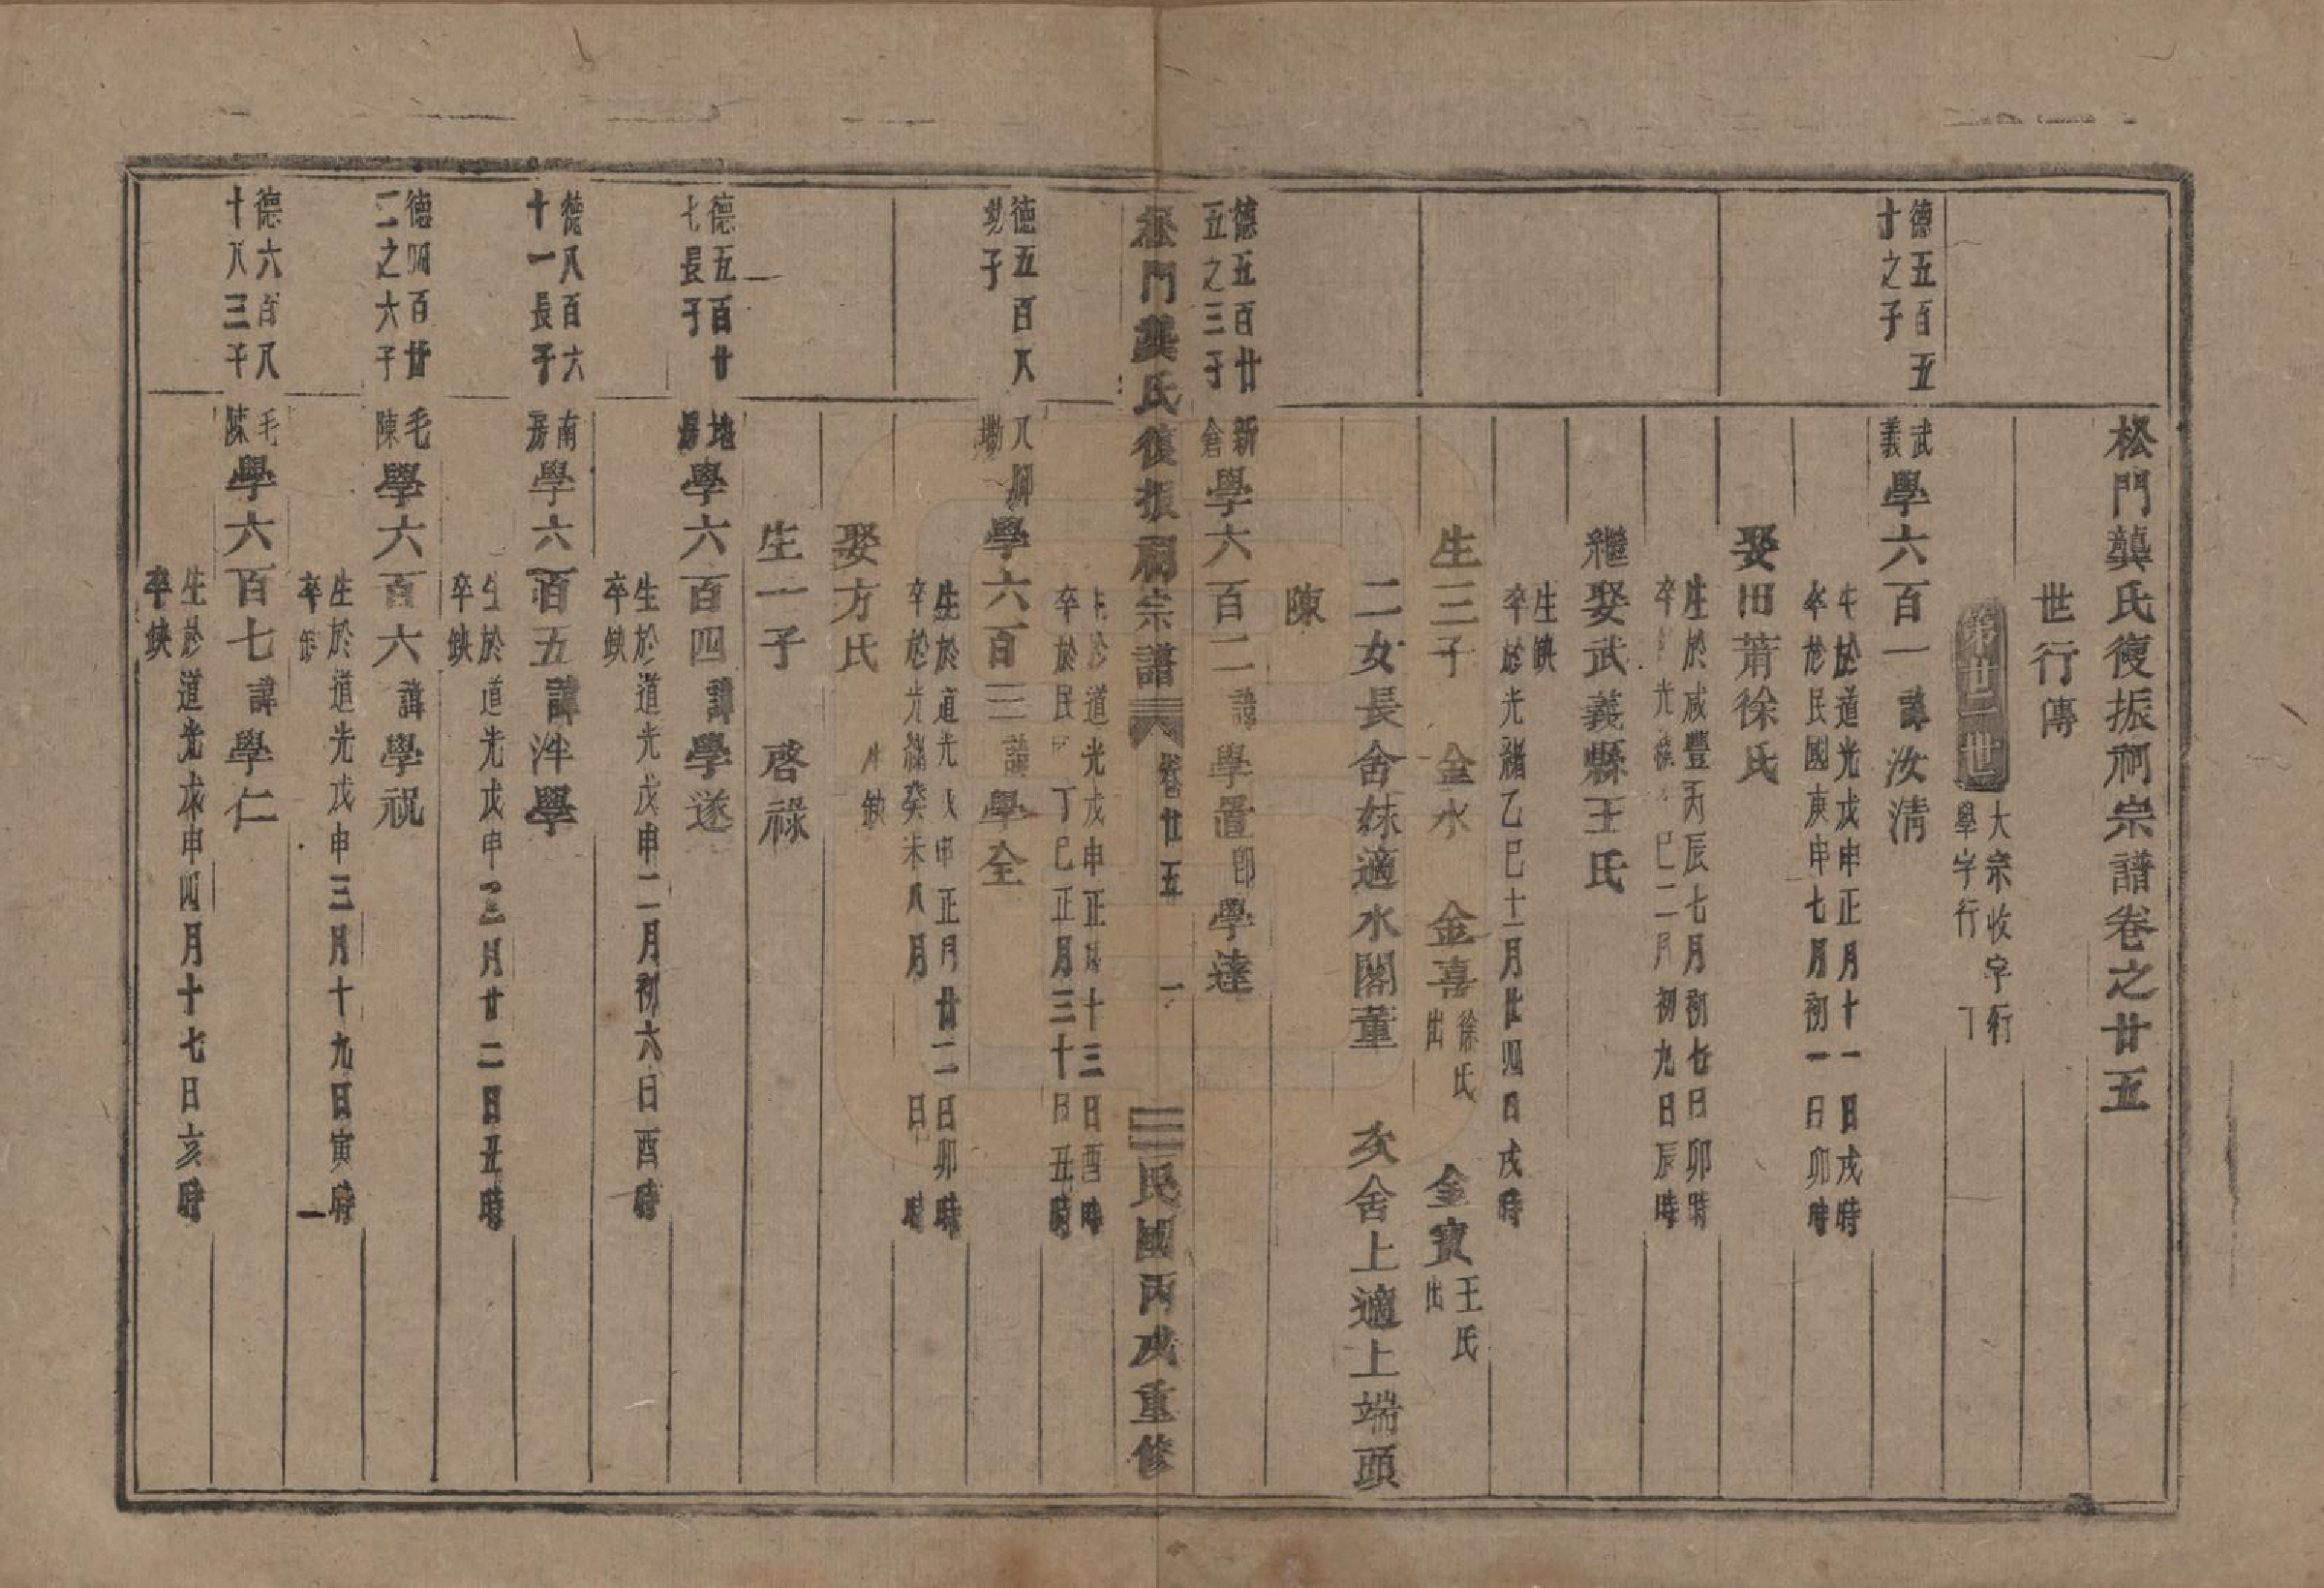 松門龔氏復振祠宗譜卷之廿五
世行傳
第廿二世
大宗收字行
學字行
德五百五
十之子
武
義
學六百一
諱
汝清
生於道光戊申正月十一日戌時
卒於民國庚申七月初一日卯時
娶田莆徐氏
生於咸豐丙辰七月初七日卯時
卒 光緒 巳二月初九日辰時
繼娶武義縣王氏
生缺
卒於光緒乙巳十二月廿四日戌時
生三子 金水 金喜
徐氏
出
金寶
王氏
出
二女長舍妹適水閣董 次舍上適上端頭
陳
德五百廿
五之三子
新
倉
學六百二
諱
學置
即
學達
生於道光戊申正月十三日酉時
卒於民國丁巳正月三十日丑時
松門龔氏復振祠宗譜 卷廿五 一 民國丙戌重修
德五百八
幼子
八腳
墈
學六百三
諱
學全
生於道光戊申正月廿二日卯時
卒於光緒癸未八月 日 時
娶方氏
生缺
生一子 啓祿
德五百廿
七長子
地
房
學六百四
諱
學遂
生於道光戊申二月初六日酉時
卒缺
德八百六
十一長子
南
房
學六百五
諱
泮學
生於道光戊申三月廿二日丑時
卒缺
德四百廿
二之六子
毛
陳
學六百六
諱
學祝
生於道光戊申三月十九日寅時
卒缺
德六百八
十八三子
毛
陳
學六百七
諱
學仁
生於道光戊申四月十七日亥時
卒缺